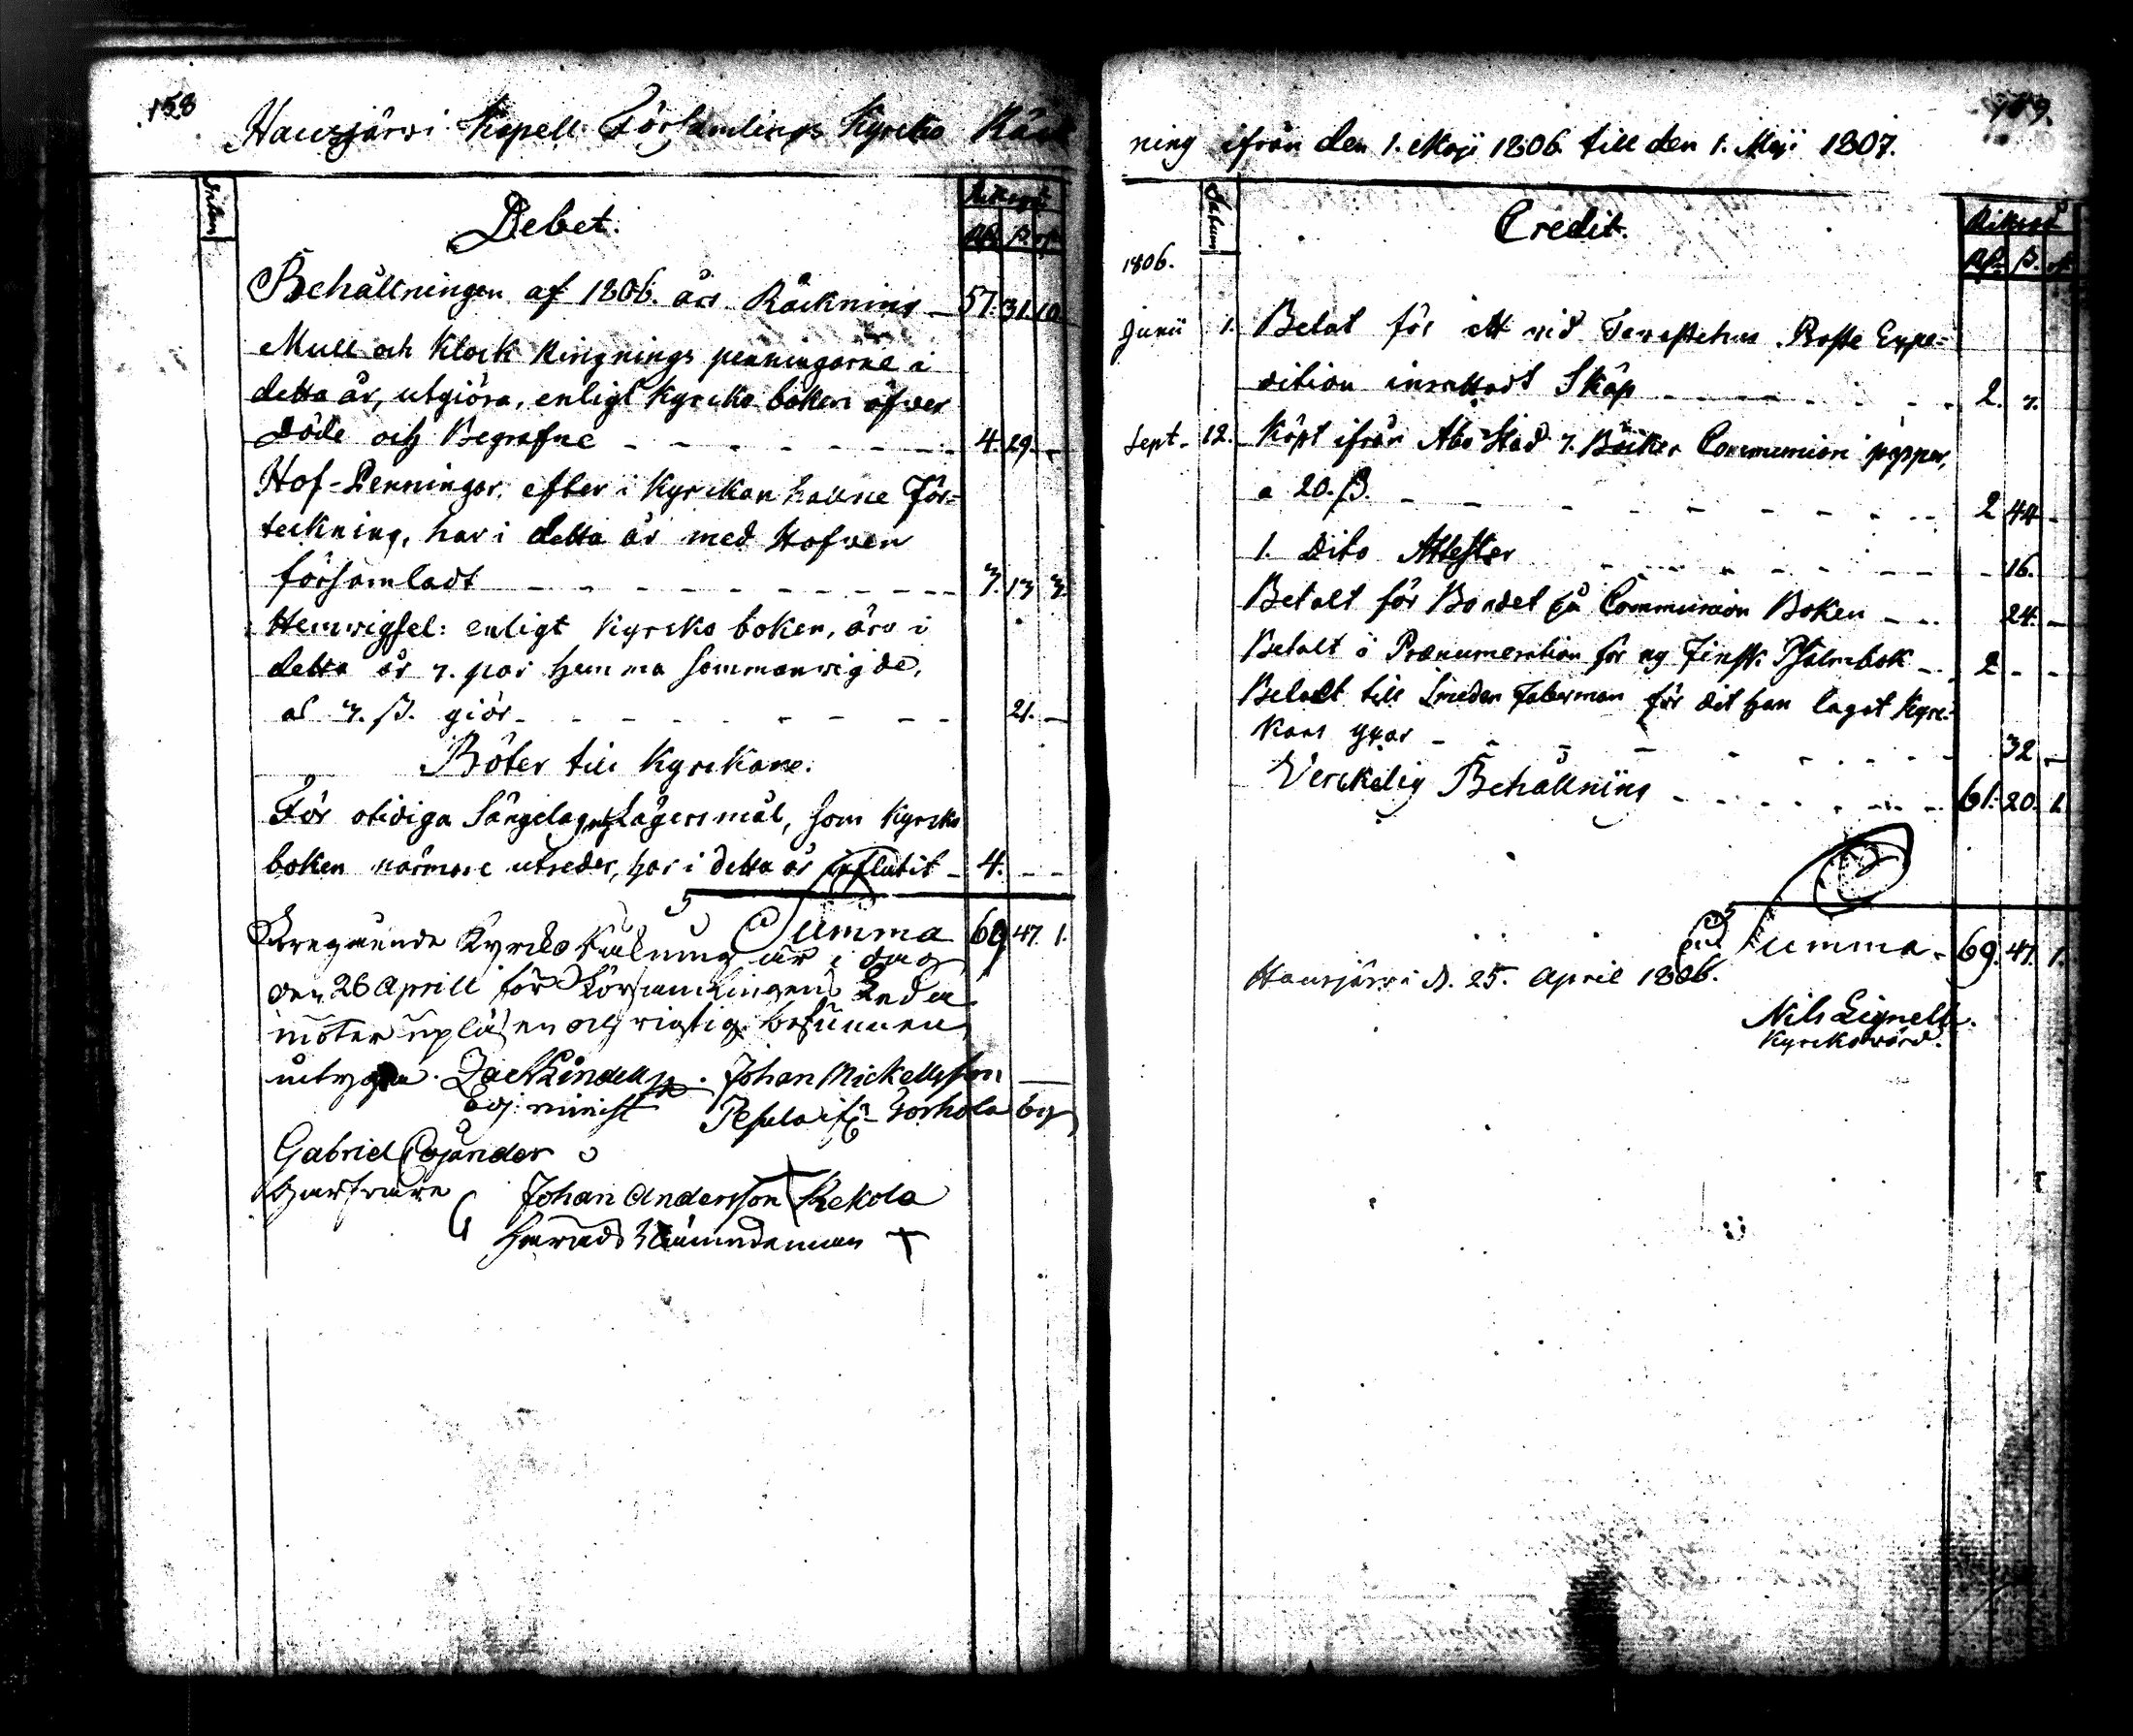 158
Hausjärvi Kapell Församlings Kyrcko Räck
Datum
Riksgd.
Debet.
Rd. ß. rt.
Behållningen af 1806. års Räckning 57. 31. 10
Mull och Klock Ringnings penningarne i
detta år, utgiöra, enligt Kyrcko boken öfver
döde och Begrafne 4. 29. -
Hof-Penningar, efter i Kyrckan hallne För-
teckning, har i detta år med Hofven
församladt 3. 13 3.
Hemvigsel: enligt Kyrcko boken, äro i
detta år 7. par hemma sammanvigde,
a 3. ß. giör 21. -
Böter till Kyrckan.
För otidiga Sängelag och Lägersmål, som Kyrcko
boken närmare utreder, har i detta år influtit 4. - -
Summa 69 47. 1.
Föregående Kyrcko Räkning är i dag
den 26 Aprill för Församlingens Leda
möter upläsen och riktig befunnen
Zach Lindell Johan Mickellsson
adj: minist
Gabriel Cajander
Johan Andersson Rekola
Härads Nämndeman
159.
ning ifrån den 1. Maji 1806. till den 1. Maji 1807.
Datum
Credit.
Riksgd
Rd. ß. rt.
1806.
Junii 1. Betat för ett vid Tavastehus Poste Expe-
dition inrättadt Skåp 2. 7.
Sept. 12. Köpt ifrån Åbo Stad 7. Böcker Communion papper,
a 20. ß. 2 44 -
1. Dito Attester - 16.
Betalt för Bandet på Communion Boken 24. -
Betalt i Prænumeration för ny Finsk Psalmbok 2 - -
Betalt till Smeden Faberman för det han lagat Kyrc-
kans 32 -
Verckelig Behållning 61. 20. 1.
Summa 69. 47. 1.
Hausjärvi d. 25. April 1806.
Nils Lignell.
Kyrckovärd.